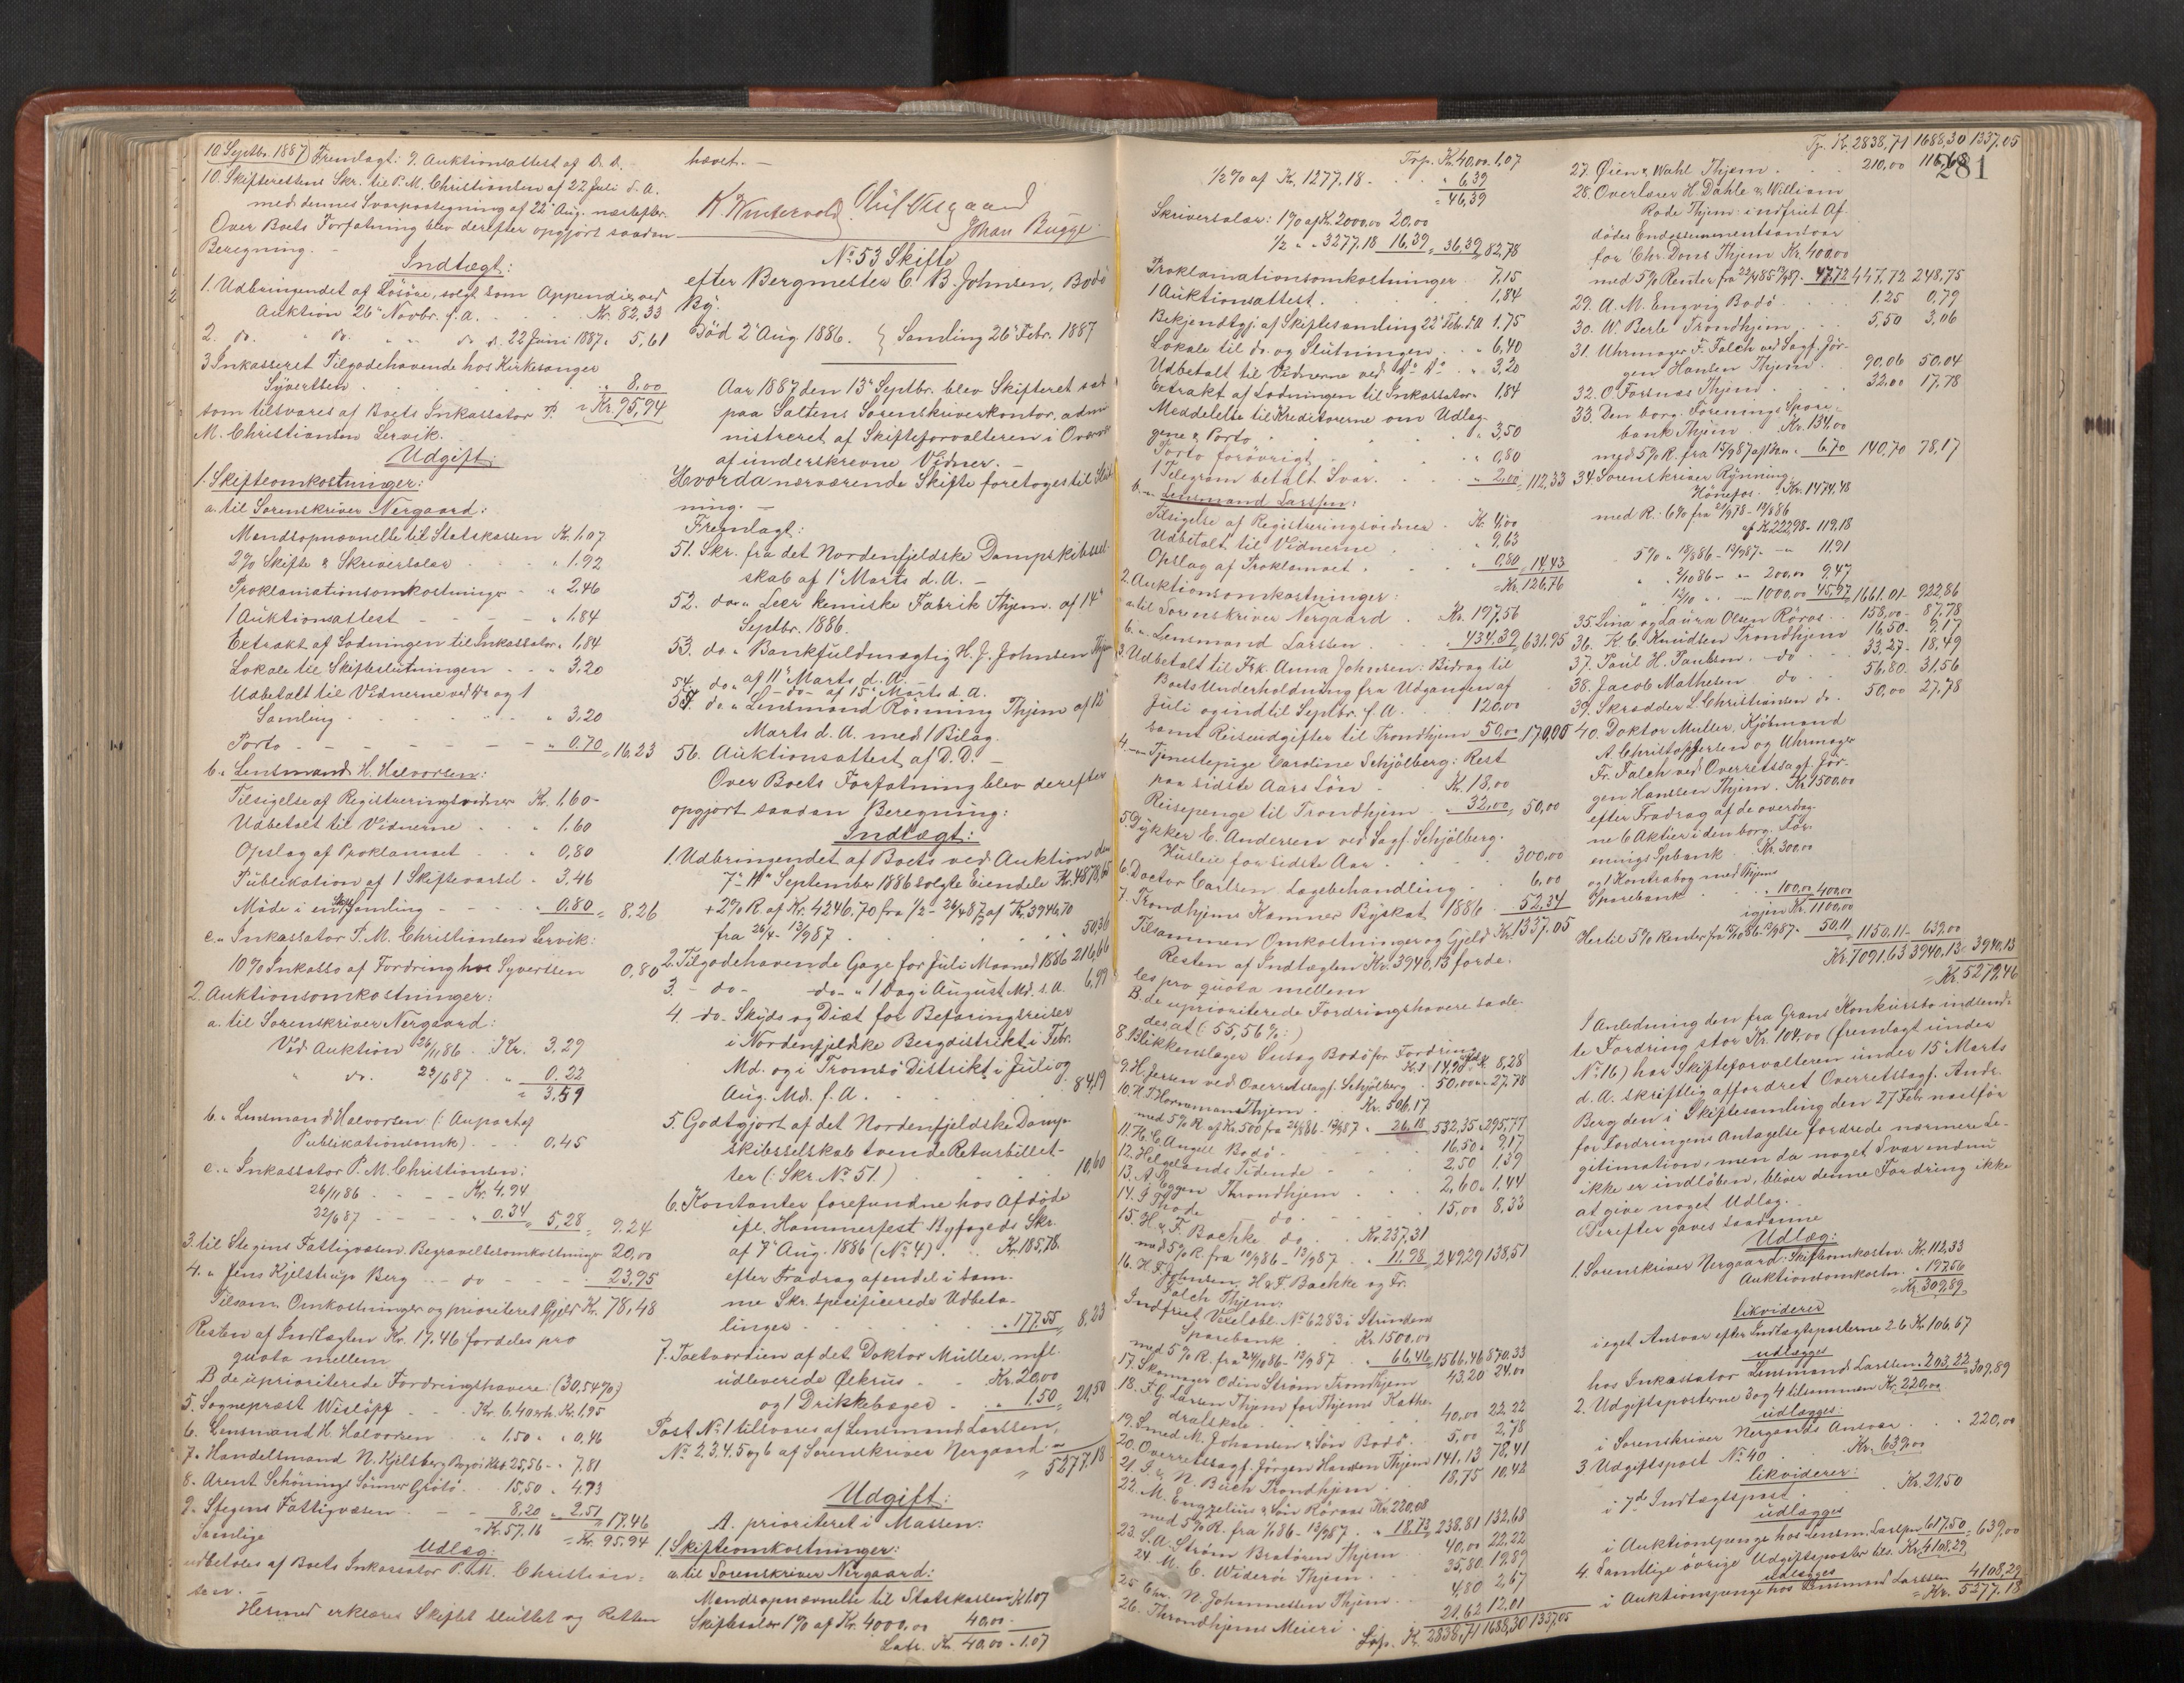 10 Septbr. 1887) Fremlagt: 9. Auktionsattest af D. D.
10. Skifterettens Skr. til P. M. Christiansen af 22 Juli d. A.
med dennes Svarpaategning af 22' Aug. næstefter.
Over Boets Forfatning blev derefter opgjort saadan
Beregning. –
Indtægt:
1. Udbringendet af Løsøre, solgt som Appendix ved
Auktion 26' Novbr. f. a. Kr. 82,33
2. do. " do. " " do d. 22 Juni 1887 " 5,61
3 Inkasseret Tilgodehavende hos Kirkesanger
Syvertsen " 8,00
som tilsvares af Boets Inkassator P. = Kr. 95,94
M. Christiansen Lervik.
Udgift:
1. Skifteomkostninger:
a. til Sorenskriver Nergaard:
Mandsopnævnelse til Statskassen Kr. 1,07
2% Skifte & Skriversalær " 1.92
Proklamationsomkostninger " 2,46
1 Auktionsattest " 1,84
Extrakt af Lodningen til Inkassator " 1,84
Lokale til Skifteslutningen " 3.20
Udbetalt til Vidnerne ved do og 1
Samling " 3,20
Porto " 0.70 = 16,23
b. " Lensmand H. Halvorsen:
Tilsigelse af Registreringsvidner Kr. 1,60
Udbetalt til Vidnerne " 1,60
Opslag af Proklamaet " 0,80
Publikation af 1 Skiftevarsel " 3,46
Møde i en Skiftesamling " 0,80 = 8,26
c. " Inkassator P. M. Christiansen Lervik:
10% Inkasso af Fordring hos Syvertsen 0,80
2. Auktionsomkostninger:
a. til Sorenskriver Nergaard:
Ved Auktion 26/11 86 Kr. 3,29
" do. 22/6 87 " 0.22
" 3,51
b. " Lensmand Halvorsen (: Anpart af
Publikationsomk) 0.45
c. " Inkassator P. M. Christiansen:
26/11 86 Kr. 4.94
22/6 87 " 0.34 = 5,28 = 9.24
3. til Stegens Fattigvæsen. Begravelsesomkostninger 20,00
4. " Jens Kjelstrup Berg do 23,95
Tilsam. Omkostninger og prioriteret Gjæld Kr. 78,48
Resten af Indtægten Kr. 17.46 fordeles pro
quota mellem
B de uprioriterede Fordringshavere: (30,54%)
5. Sognepræst Wisløff Kr. 6.40 erh. Kr. 1,95
6. Lensmand H. Halvorsen " 1,50 " " 0,46
7. Handelsmand N. Kjelsberg 25,56 " 7,81
8. Arent Schønings Sønner Grøtø 15,50 " 4.73
9. Stegens Fattigvæsen 8,20 " 2,51 = 17,46
Samlige = Kr. 57.16 = Kr. 95.94
Udlæg:
udbetales af Boets Inkassator P. M. Christian-
sen. –
Hermed erklæres Skiftet sluttet og Retten
hævet. –
K. Wintervold Oluf Nergaard
Johan Bugge
No 53 Skifte
efter Bergmester C. B. Johnsen, Bodø
By.
Død 2' Aug 1886. } Samling 26' Febr. 1887
Aar 1887 den 13' Septbr. blev Skifteret sat
paa Saltens Sorenskriverkontor, admi
nistreret af Skifteforvalteren i Overvær
af underskrevne Vidner. –
Hvorda nærværende Skifte foretoges til Slut
ning. –
Fremlagt:
51. Skr. fra det Nordenfjeldske Dampskibssel-
skab af 1' Marts d. A. –
52. do " Leer kemiske Fabrik Thjem. af 14'
Septbr. 1886.
53. do " Bankfuldmægtig H. J. Johnsen Thjem
af 11' Marts d. A. –
54. do " – do – af 15' Marts d. A.
55. do " Lensmand Rønning Thjem af 12'
Marts d. A. med 1 Bilag.
56. Auktionsattest af D. D. –
Over Boets Forfatning blev derefter
opgjort saadan Beregning:
Indtægt:
1. Udbringendet af Boets ved Auktion den
7' – 11' September 1886 solgte Eiendele Kr. 4878,65
+ 2% R. af Kr. 4246,70 fra 1/2 – 26/4 87, af Kr. 3946,70
fra 26/4 – 13/9 87 " 50,36
2. Tilgodehavende Gage for Juli Maaned 1886 216,66
3. – do – – do – " 1 Dag i August Md. s. A. 6,99
4. do – Skyds og Diæt for Befaringsreiser
i Nordenfjeldske Bergdistrikt i Febr.
Md. og i Tromsø Distrikt i Juli og
Aug. Md. f. A. " 84,19
5. Godtgjort af det Nordenfjeldske Damp-
skibsselskab tvende Returbillet-
ter (: Skr. No 51.) 10,60
6. Kontanter forefundne hos Afdøde
ifl. Hammerfest Byfogeds Skr.
af 7' Aug. 1886 (No 4) Kr. 185,78
efter Fradrag af en del i sam-
me Skr. specificerede Udbeta-
linger " 177.55 = 8,23
7. Taxtværdien af det Doktor Müller. mfl.
udleverede Ølkrus Kr. 20,00
og 1 Drikkebæger " 1.50 = 21,50
Post No 1 tilsvares af Lensmand Larssen,
No 2, 3, 4, 5 og 6 af Sorenskriver Nergaard =
" 5277,18
Udgift:
A. prioriteret i Massen:
1. Skifteomkostninger:
a. til Sorenskriver Nergaard:
Mandsopnævnelse til Statskassen Kr. 1.07
Skiftesalær 1% af Kr. 4000,00 40,00
Latr. Kr. 40,00 = 1,07
Trp. Kr. 40,00 1,07
1/2% af Kr. 1277.18 " 6,39
= 46,39
Skriversalær: 1% af Kr. 2000,00 20,00
1/2 " " 3277,18 16,39 = 36,39 = 82,78
Proklamationsomkostninger 7,15
1 Auktionsattest 1,84
Bekjendtgj. af Skiftesamling 22' Feb. d. A 1.75
Lokale til do. og Slutningen " 6,40
Udbetalt til Vidnerne ved do do " 3,20
Extrakt af Lodningen til Inkassator 1,84
Meddelelse til Kreditorerne om Udlæg-
gene & Porto " 3,50
Porto forøvrigt " 0,80
1 Telegram betalt Svar " 2,00 = 112,33
b. " Lensmand Larssen:
Tilsigelse af Registreringsvidner Kr. 4,00
Udbetalt til Vidnerne " 9,63
Opslag af Proklamaet " 0,80 = 14,43
= Kr. 126,76
2. Auktionsomkostninger:
a. til Sorenskriver Nergaard Kr. 197,56
b. " Lensmand Larssen " 434,39 = 631,95
3. Udbetalt til Frk. Anna Johnsen: Bidrag til
Boets Underholdning fra Udgangen af
Juli og indtil Septbr. f. A. 120,00
samt Reiseudgifter til Trondhjem 50,00 = 170,00
4. " Tjenestepige Caroline Schjølberg: Rest
paa sidste Aars Løn Kr. 18,00
Reisepenge til Trondhjem " 32,00 = 50,00
5. Dykker E. Andersen ved Sagf. Schjølberg.
Husleie for sidste Aar 300,00
6. Doctor Carlsen. Lægebehandling 6,00
7. Trondhjems Kæmner Byskat 1886 52,34
Tilsammen Omkostninger og Gjæld Kr. 1337.05
Resten af Indtægten Kr. 3940,13 forde-
les pro quota mellem
B. de uprioriterede Fordringshavere saale-
des at (55,56%:)
8. Blikkenslager Bodø for Fordring
Kr. 14,90 8,28
9. H. Jensen ved Overretssagf. Schjølberg 50,00 = 27,78
10. H. T. Hornemann Thjem Kr. 506,17
med 5% R. af Kr. 500 fra 26/8 86 – 13/9 87 " 26,18 532,35 = 295,77
11. H. C. Angell Bodø 16,50 9,17
12. Helgelands Tidende 2,50 1,39
13. A. Eggen Throndhjem 2,60 " 1,44
14. Thode do 15,00 8,33
15. H. & F. Bachke do Kr. 237,31
med 5% R. fra 10/9 86 – 13/9 87 " 11,98 249,29 138,51
16. H. F. Johnsen, H & F. Bachke og Fr.
Falch Thjem:
Indfriet Vexelobl. No 6283 i Strinden
Sparebank Kr. 1500,00
med 5% R. fra 24/10 86 – 13/9 87 " 66,46 = 1566,46 870,33
17. Skomager Odin Strøm Trondhjem 43,20 24,00
18. F. G. Larsen Thjem for Thjems Kathe-
dralskole 40,00 22,22
19. Smed M. Johansen & Søn Bodø 5,00 2,78
20. Overretssagf. Jørgen Hansen Thjem 141,13 78,41
21. J. & N. Buch Trondhjem 18,75 10,42
22. M. Engzelius & Søn Røraas Kr. 220,08
med 5% R. fra 1/1 86 – 13/9 87 " 18,73 238,81 132,68
23. S. A. Strøm Bratøren Thjem 40,00 22,22
24. M. C. Widerø Thjem 35,80 19,89
25. Chr. N. Johannessen Thjem 4,80 2,67
26. Throndhjems Meieri 21,62 12,01
Trp. Kr. 2838,71 1688,30 1337,05
Tp. Kr. 2838,71 1688,30 1337.05
281
27. Øien & Wahl Thjem 210,00 116,68
28. Overlærer H Dahle & William
Rode Thjem: indfriet Af-
dødes Endossementsansvar
for Chr. Dons Thjem Kr. 400,00
med 5% Renter fra 23/4 85 – 13/9 87 " 47.72 447,72 248,75
29. A. M. Engvig Bodø 1,25 0,79
30. W. Berle Trondhjem 5,50 3,06
31. Uhrmager F. Falch ved Sagf. Jør-
gen Hansen Thjem 90,06 50,04
32. O. Forsnæs Thjem 32,00 17,78
33. Den borg. Forenings Spare-
bank Thjem Kr. 134,00
med 5% R. fra 15/9 87 af 1 Dn " 6,70 140,70 78,17
34. Sorenskriver Rynning
Hønefos Kr. 1474,48
med R. 6% fra 23/9 78 – 18/8 86
af Kr. 222,98 – 119,18
5% " 18/8 86 – 13/9 87 – 11.91
" 2/10 86 – " 200,00 9,47
" 12/10 " 1000,00 45,97 = 1661.01 – 922,86
35. Lina og Laura Olsen Røros 158,00 – 87.78
36. K. C. Knudsen Trondhjem 16,50 – 9,17
37. Paul H. Paulsen do 33,27 – 18,49
38. Jacob Mathesen do 56,80 – 31,56
39. Skrædder L. Christiansen do 50,00 27,78
40. Doktor Müller, Kjøbmand
A. Christophersen og Uhrmager
Fr. Falch ved Overretssagf. Jør-
gen Hanssen Thjem Kr. 1500,00
efter Fradrag af de overdrag-
ne 6 Aktier i den borg. For-
enings Spbank Kr. 300,00
og 1 Kontrabog med Thjems
Sparebank " 100,00 400,00
igjen Kr. 1100,00
Hertil 5% Renter fra 15/10 86 – 13/9 87 " 50,11 = 1150,11 – 639,00
Kr. 7091,63 3940,13 = 3940,13
= Kr. 5277,46
I Anledning den fra Grans Konkursbo indsend-
te Fordring stor Kr. 104,00 (fremlagt under
No 16) har Skifteforvalteren under 15' Marts
d. A. skriftlig affordret Overretssagf. Andr.
Berg den i Skiftesamling den 27 Febr. næstfør
for Fordringens Antagelse fordrede nærmere Le-
gitimation, men da noget Svar endnu
ikke er indløben, bliver denne Fordring ikke
at give noget Udlæg.
Derefter gaves saadanne
Udlæg:
1. Sorenskriver Nergaard: Skifteomkostn. Kr. 112,33
Auktionsomkostn. " 197,56
= Kr. 309,89
likviderer
i eget Ansvar efter Indtægtsposterne 2–6 Kr. 106,67
udlægges
hos Inkassator Lensmand Larssen " 203,22 = 309,89
2. Udgiftsposterne 3 og 4 tilsammen Kr. 220,00
udlægges:
i Sorenskriver Nergaards Ansvar " 220,00
3. Udgiftspost No 40 Kr. 639,00
likviderer:
i 7de Indtægtspost Kr. 21,50
udlægges
i Auktionspenge hos Lensm. Larssen 617,50 = 639,00
4. Samtlige øvrige Udgiftsposter tils. Kr. 4108,29
udlægges
i Auktionspenge hos Lensmand Larssen 4108,29
= Kr. 5277.18